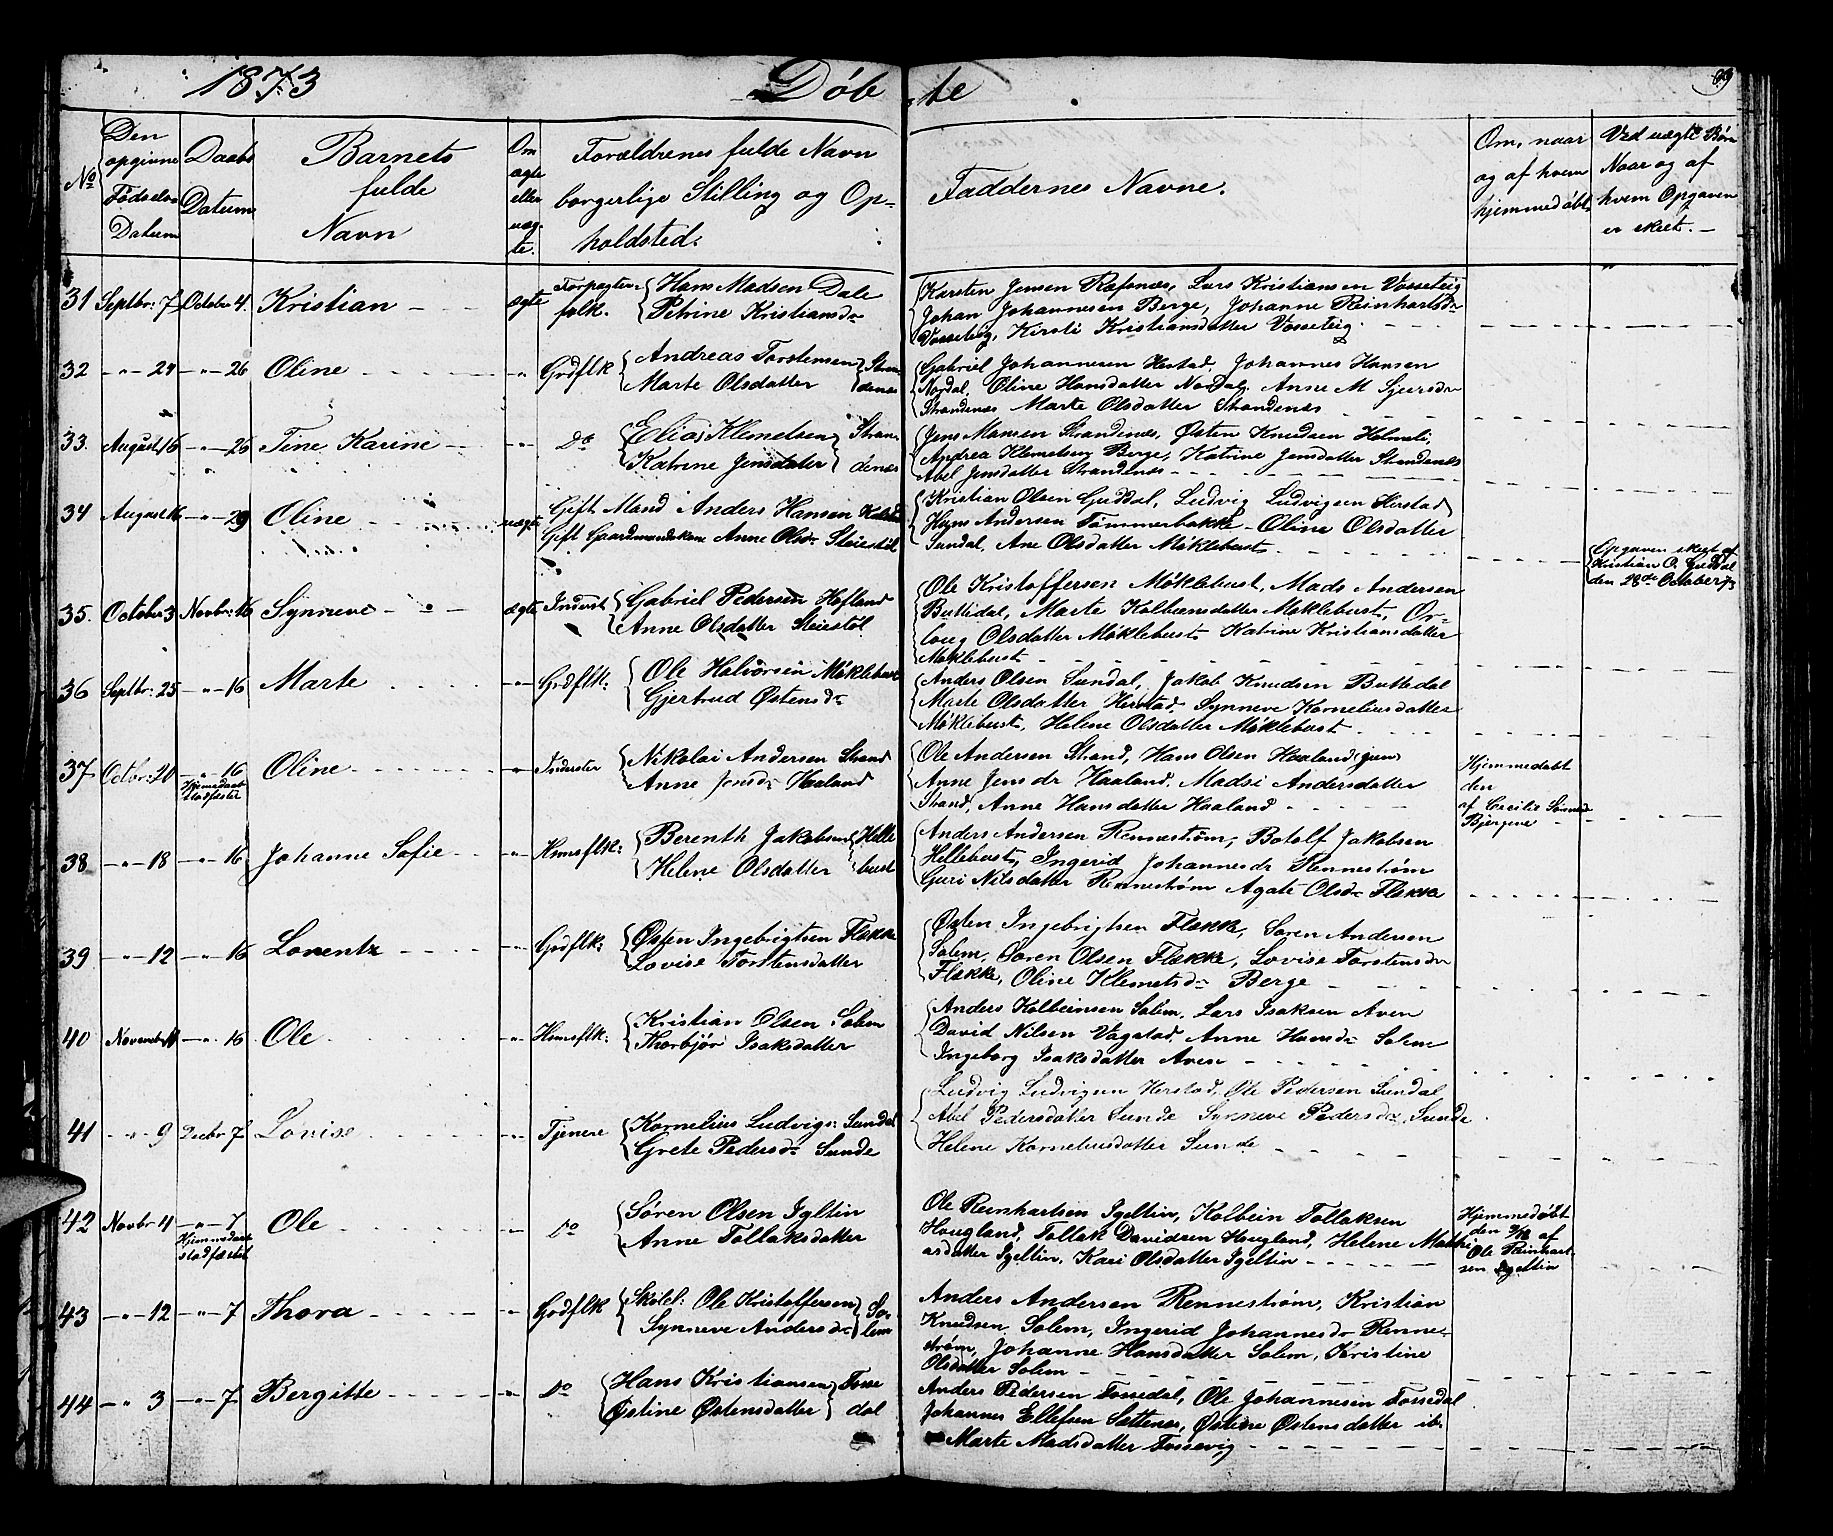 1873 Døbte 99
No
Den opgivne Fødsels Datum
Daabs Datum
Barnets fulde Navn
Om ægte eller uægte.
Forældrenes fulde Navn borgerlige Stilling og Opholdsted.
Faddernes Navne.
Om, naar og af hvem hjemmedøbt
Ved uægte Børn Naar og af hvem Opgaven er skeet.
31 Septbr: 7 Octobr 4. Kristian ægte Forpagterfolk. Hans Madsen Dale
Petrine Kristiansdr
Karsten Jensen Rafsnæs, Lars Kristiansen Vosseteig
Johan Johannesen Berge, Johanne Reinhartsdr
Vosseteig, Kirsti Kristiansdatter Vosseteig.
32 -"- 24 -"- 26 Oline " Grdflk Andreas Torstensen
Marte Olsdatter Strandenæs
Gabriel Johannesen Herstad, Johannes Hansen
Nordal, Oline Hansdatter Nordal, Anne M Sjursdr
Strandenæs Marte Olsdatter Strandenæs
33. August 16 -"- 26 Tine Karine -"- Do Elias Klemetsen
Katrine Jensdatter Strandenæs
Jens Monsen Strandenæs, Østen Knudsen Holmeli,
Andrea Klemetsen Berge, Katrine Jensdatter Strandenæs
Abel Jensdatter Strandenæs
34 August 16 -"- 29 Oline uægte Gift Mand Anders Hansen
Gift Gaardmandskone Anne Olsdr Steiestøl
Kristian Olsen Guddal, Ludvig Ludvigsen Herstad
Hans Andersen Tømmerbakke Oline Olsdatter
Sundal, Ane Olsdatter Møklebust
Opgaven skeet af
Kristian O. Guddal
den 28de October 73
35. October 3 Novbr: 16 Synneve ægte Inderst Gabriel Pedersen Hofland
Anne Olsdatter Steiestøl
Ole Kristoffersen Møklebust, Mads Andersen
Buttedal, Marte Kolbeensdatter Møklebust, Or-
laug Olsdatter Møklebust Katrine Kristiansdatter
Møklebust
36 Septbr: 25 -"- 16 Marte -"- Grdflk: Ole Halvorsen Møklebust
Gjertrud Østensdr
Anders Olsen Sundal, Jakob Knudsen Buttedal
Marte Olsdatter Herstad, Synneve Korneliusdatter
Møklebust, Helene Olsdatter Møklebust
37 Octobr: 20 -"- 16
Hjemmedaab
stadfæstet Oline -"- Inderster Nikolai Andersen Strand
Anne Jensdr Haaland
Ole Andersen Strand, Hans Olsen Haaland
Anne Jensdr Haaland, Madsi Andersdatter
Strand, Anne Hansdatter Haaland
Hjemmedøbt
den
af Cecilie
38 -"- 18 -"- 16 Johanne Sofie -"- Hmsflk: Berenth Jakobsen
Helene Olsdatter Hellebust
Anders Andersen Rennestrøm, Botolf Jakobsen
Hellebust, Ingerid Johannesdr Rennestrøm
Guri Nilsdatter Rennestrøm Agate Olsdr Flække
39 -"- 12 -"- 16 Lorentz -"- Grdflk: Østen Ingebrigtsen Flække
Lovise Torstensdatter
Østen Ingebrigtsen Flække, Søren Andersen
Solem, Søren Olsen Flække, Lovise Torstensdr
Flække, Oline Klemetsdr Berge
40 Novembr -"- 16 Ole -"- Hmsflk: Kristian Olsen Solem
Thorbjør Isaksdatter
Anders Kolbeinsen Solem, Lars Isaksen Aven
David Nilsen Vagstad, Anne Hansdr Solem
Ingeborg Isaksdatter Aven
41 -"- 9 Decbr 7 Lovise -"- Tjenere Kornelius Ludvigs: Sundal
Grete Pedersdr Sunde
Ludvig Ludvigsen Herstad, Ole Pedersen Sundal
Abel Pedersdatter Sunde Synneve Pedersdr Sunde
Helene Korneliusdatter Sunde
42 Novbr 4 -"- 7
Hjemmedaab
stadfæstet Ole -"- Do Søren Olsen Igeltin
Anne Tollaksdatter
Ole Reinhartsen Igeltin, Kolbein Tollaksen
Hougland, Tollak Davidsen Hougland, Helene Mathi-
asdatter Igeltin, Kari Olsdatter Igeltin
Hjemmedøbt
den af
Ole Reinhart-
sen Igeltin
43 -"- 12 -"- 7 Thora -"- Grdflk Skolel: Ole Kristoffersen
Synneve Andersdr Solem
Anders Andersen Rennestrøm, Kristian
Knudsen Solem, Ingerid Johannesdr Renne-
strøm, Johanne Hansdatter Solem, Kristine
Olsdatter Solem
44 -"- 3 -"- 7 Bergitte -"- Do Hans Kristiansen
Østine Østensdatter Fossedal
Anders Pedersen Fossedal, Ole Johannesen Fossedal
Johannes Ellefsen Sættenæs, Østine Østensdatter ib:
Marte Madsdatter Fossevig